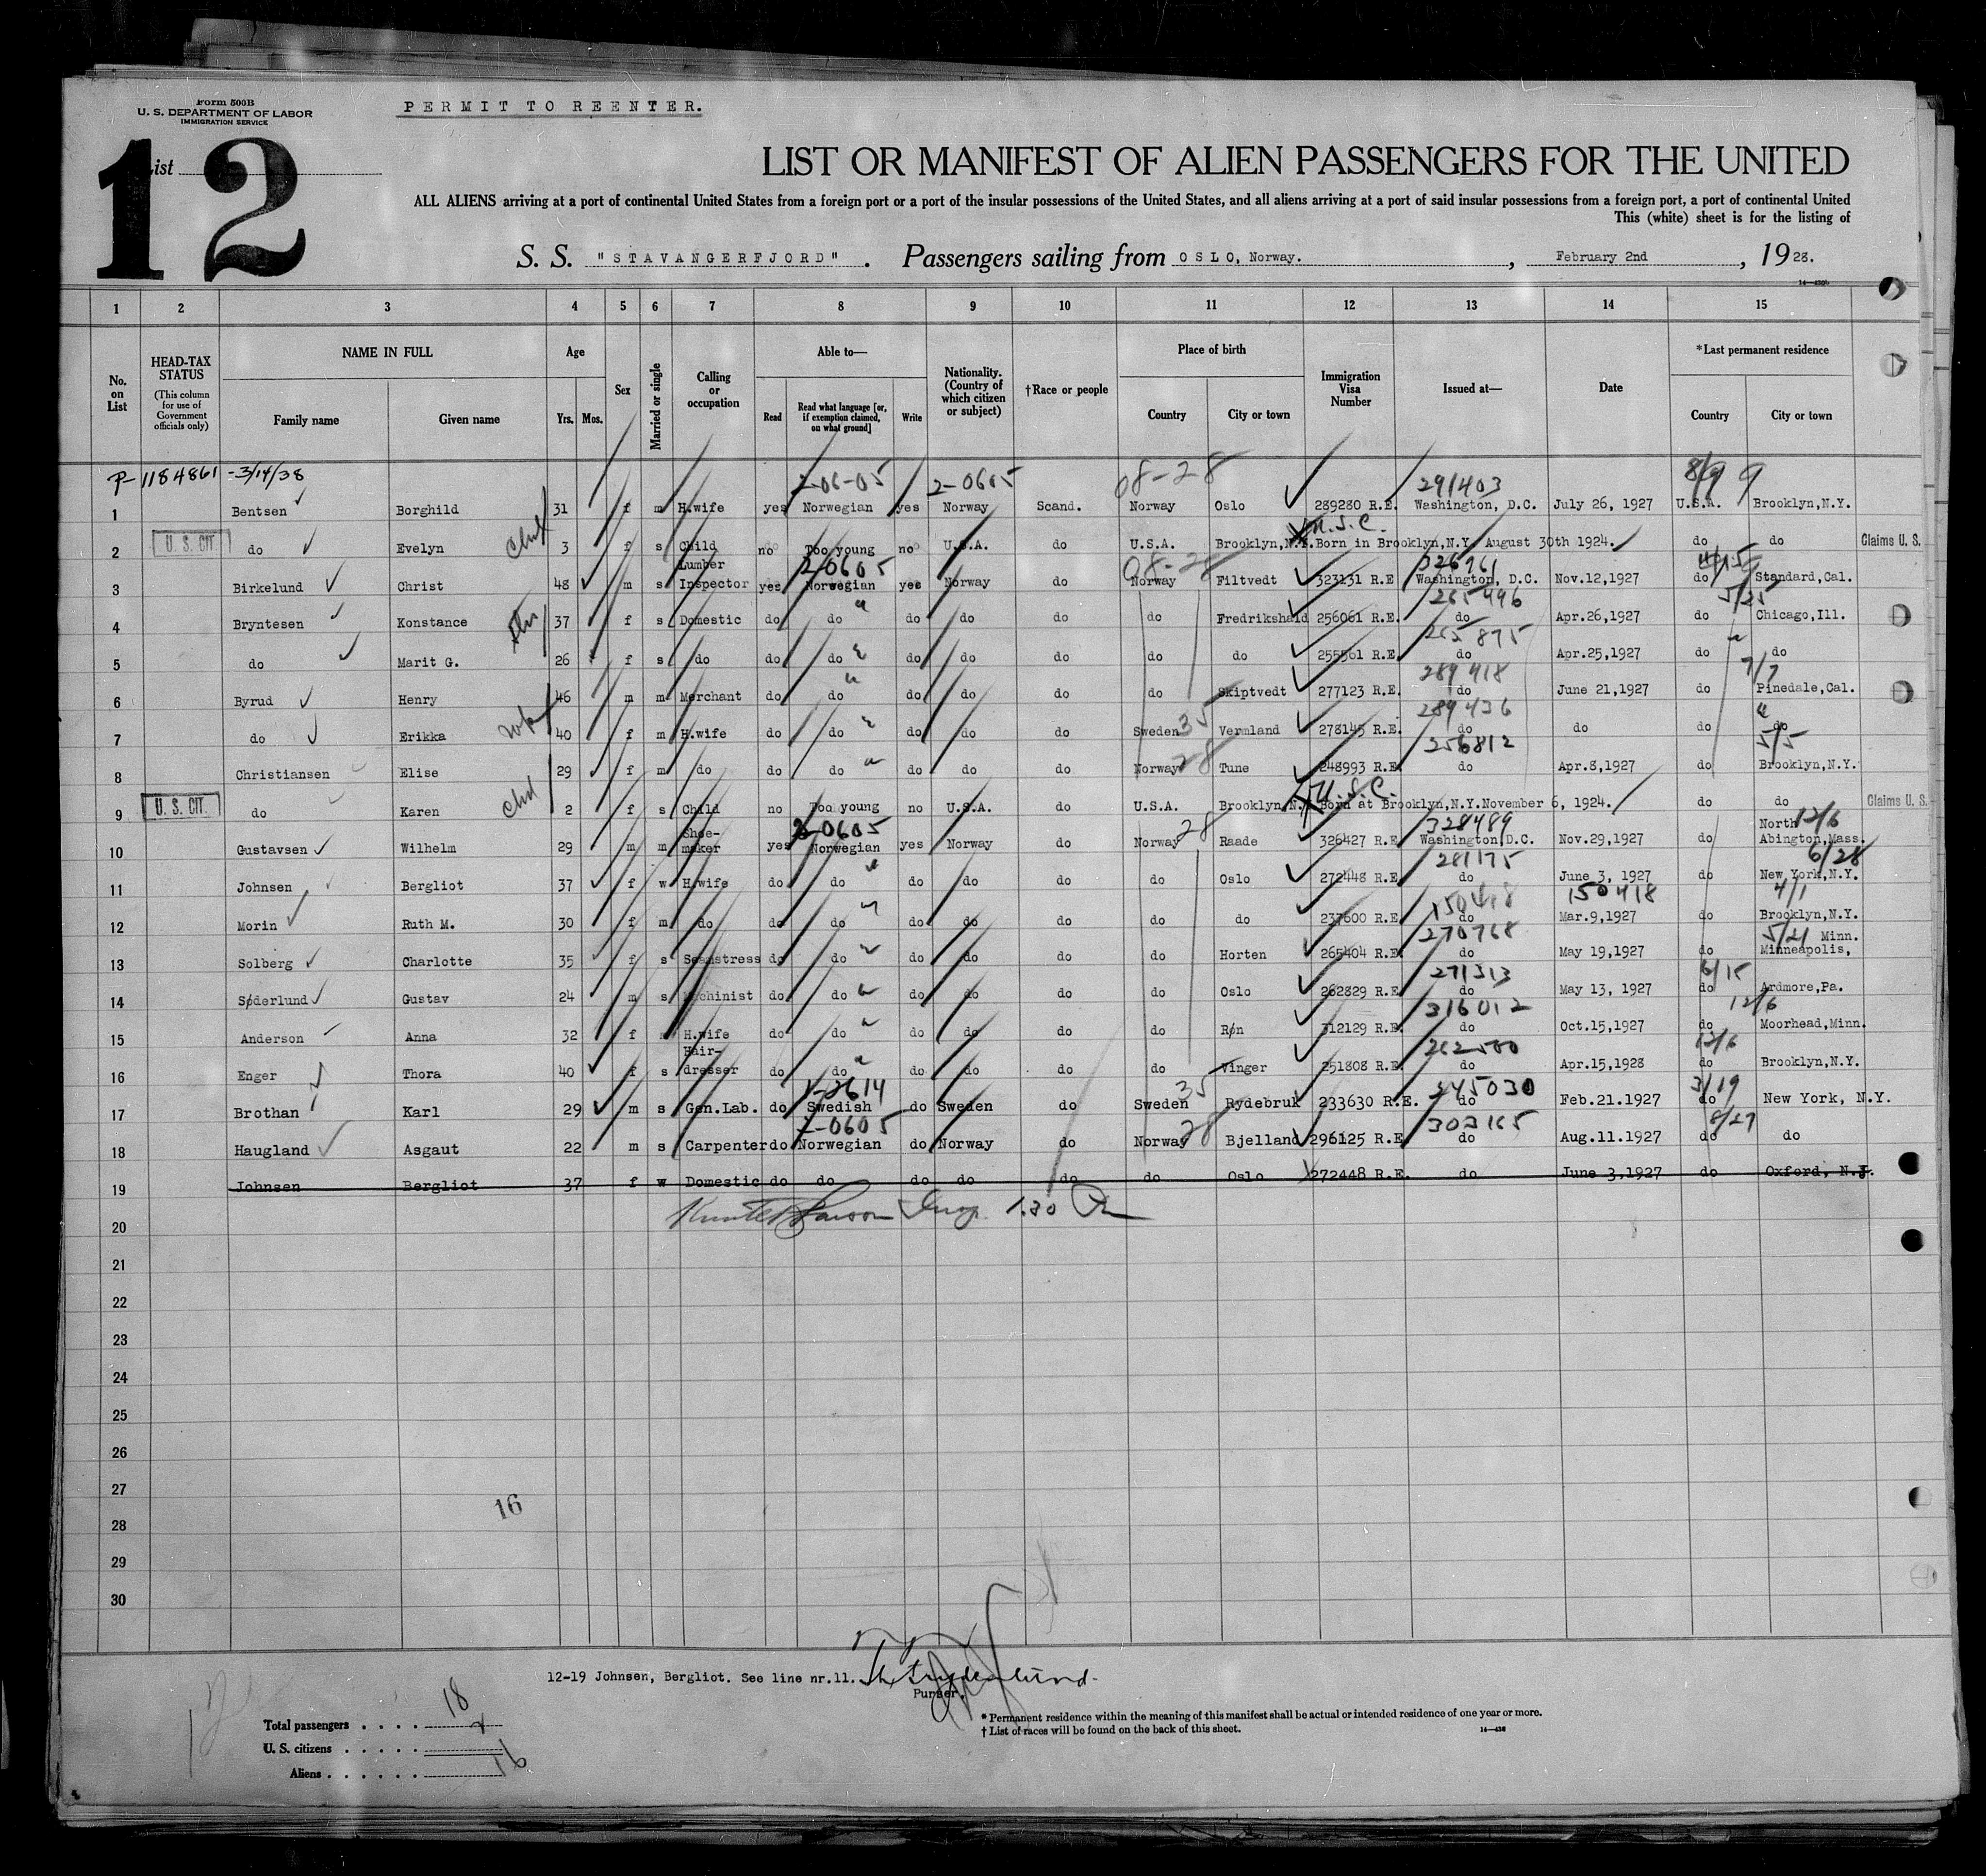 Form 500B
U. S. DEPARTMENT OF LABOR
IMMIGRATION SERVICE
PERMIT TO REENTER.
List 12
LIST OR MANIFEST OF ALIEN PASSENGERS FOR THE UNITED
ALL ALIENS arriving at a port of continental United States from a foreign port or a port of the insular possessions of the United States, and all aliens arriving at a port of said insular possessions from a foreign port, a port of continental United
This (white) sheet is for the listing of
S. S. "STAVANGERFJORD". Passengers sailing from OSLO, Norway. , February 2nd , 1928.
1 2 3 4 5 6 7 8 9 10 11 12 13 14 15
No. on List
HEAD-TAX STATUS (This column for use of Government officials only)
NAME IN FULL Family name Given name
Age Yrs. Mos.
Sex
Married or single
Calling or occupation
Able to— Read Read what language [or, if exemption claimed, on what ground] Write
Nationality. (Country of which citizen or subject)
†Race or people
Place of birth Country City or town
Immigration Visa Number
Issued at—
Date
*Last permanent residence Country City or town
P-1184861 -3/14/38 2-06-05 2-0605 08-28 291403 8/9 9
1 Bentsen Borghild 31 f m H.wife yes Norwegian yes Norway Scand. Norway Oslo 289280 R.E. Washington, D.C. July 26, 1927 U.S.A. Brooklyn,N.Y.
U.S.C.
2 U. S. CIT. do Evelyn 3 f s Child no Too young no U.S.A. do U.S.A. Brooklyn,N.Y. Born in Brooklyn,N.Y. August 30th 1924. do do Claims U. S.
2-0605 08-28 326961 4/15
3 Birkelund Christ 48 m s Lumber Inspector yes Norwegian yes Norway do Norway Filtvedt 323131 R.E Washington, D.C. Nov.12,1927 do Standard,Cal.
265496 5/25
4 Bryntesen Konstance 37 f s Domestic do do do do do do Fredrikshald 256061 R.E. do Apr.26,1927 do Chicago,Ill.
265875
5 do Marit G. 26 f s do do do do do do do do 255561 R.E. do Apr.25,1927 do do
289418 7/7
6 Byrud Henry 46 m m Merchant do do do do do do Skiptvedt 277123 R.E. do June 21,1927 do Pinedale,Cal.
35 289436
7 do Erikka 40 f m H.wife do do do do do Sweden Vermland 278145 R.E. do do do do
28 256812 5/5
8 Christiansen Elise 29 f m do do do do do do Norway Tune 248993 R.E. do Apr.8,1927 do Brooklyn,N.Y.
U.S.C.
9 U. S. CIT. do Karen 2 f s Child no Too young no U.S.A. do U.S.A. Brooklyn,N.Y. Born at Brooklyn,N.Y.November 6, 1924. do do Claims U. S.
2-0605 28 328489 12/6
10 Gustavsen Wilhelm 29 m m Shoe-maker yes Norwegian yes Norway do Norway Raade 326427 R.E. Washington,D.C. Nov.29,1927 do North Abington,Mass.
281175 6/28
11 Johnsen Bergliot 37 f w H.wife do do do do do do Oslo 272448 R.E. do June 3, 1927 do New York,N.Y.
150418 150418 4/1
12 Morin Ruth M. 30 f m do do do do do do do do 237600 R.E. do Mar.9,1927 do Brooklyn,N.Y.
270768 5/21
13 Solberg Charlotte 35 f s Seamstress do do do do do do Horten 265404 R.E. do May 19,1927 do Minneapolis, Minn.
271313 6/15
14 Søderlund Gustav 24 m s Machinist do do do do do do Oslo 262829 R.E. do May 13, 1927 do Ardmore,Pa.
316012 12/6
15 Anderson Anna 32 f H.wife do do do do do do Røn 312129 R.E. do Oct.15,1927 do Moorhead,Minn.
262580 12/6
16 Enger Thora 40 f s Hair-dresser do do do do do do Vinger 251808 R.E. do Apr.15,1928 do Brooklyn,N.Y.
35 245030 3/19
17 Brothan Karl 29 m s Gen.Lab. do Swedish do Sweden do Sweden Rydebruk 233630 R.E. do Feb.21.1927 do New York, N.Y.
2-0605 28 303165 8/27
18 Haugland Asgaut 22 m s Carpenter do Norwegian do Norway do Norway Bjelland 296125 R.E. do Aug.11.1927 do do
19 Johnsen Bergliot 37 f w Domestic do do do do do do Oslo 272448 R.E. do June 3,1927 do Oxford, N.J.
20 1.30 Pm
21
22
23
24
25
26
27
16
28
29
30
12-19 Johnsen, Bergliot. See line nr.11.
Purser.
Total passengers . . . . 18
U. S. citizens . . . . . 2
Aliens . . . . . . 16
* Permanent residence within the meaning of this manifest shall be actual or intended residence of one year or more.
† List of races will be found on the back of this sheet.
14—436